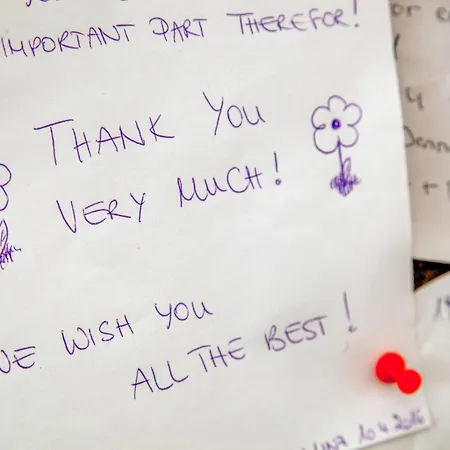 IMPORTANT PART THEREFOR!
THANK YOU
VERY MUCH!
WE WISH YOU
ALL THE BEST!
10.4.2016
or
4